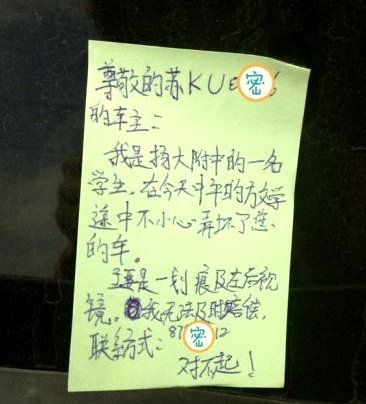 尊敬的苏KU密
的车主:
我是扬大附中的一名
学生,在今天中午的放学
途中不小心弄坏了您
的车。
主要是一划痕及左后视
镜。我无法及时赔偿,
联系方式:87密12
对不起!